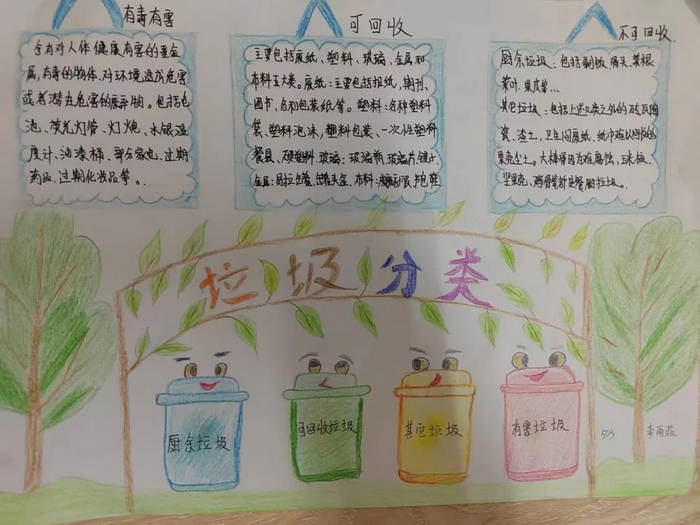 有毒有害
含有对人体健康有害的重金
属,有毒的物体、对环境造成危害
或者潜在危害的废弃物。包括电
池、荧光灯管、灯炮、水银温
度计、油漆桶、部分家电、过期
药品、过期化妆品等。
可回收
主要包括废纸、塑料、玻璃、金属和
布料五大类。废纸:主要包括报纸、期刊、
图书、各种包装纸等。塑料:各种塑料
袋、塑料泡沫、塑料包装、一次性塑料
餐具、硬塑料.玻璃:玻璃瓶,玻璃片,镜子.
金属:易拉罐、罐头盒.布料:
不可回收
厨余垃圾:包括剩饭,骨头,菜根
菜叶,果皮等...
其它垃圾:包括上述几类之外的砖瓦陶
瓷、渣土,卫生间废纸、纸巾
果壳尘土。大棒骨因为难腐蚀,玉米核、
坚果壳、鸡骨等则是餐厨垃圾。
垃圾分类
厨余垃圾
可回收垃圾
其它垃圾
有害垃圾
503